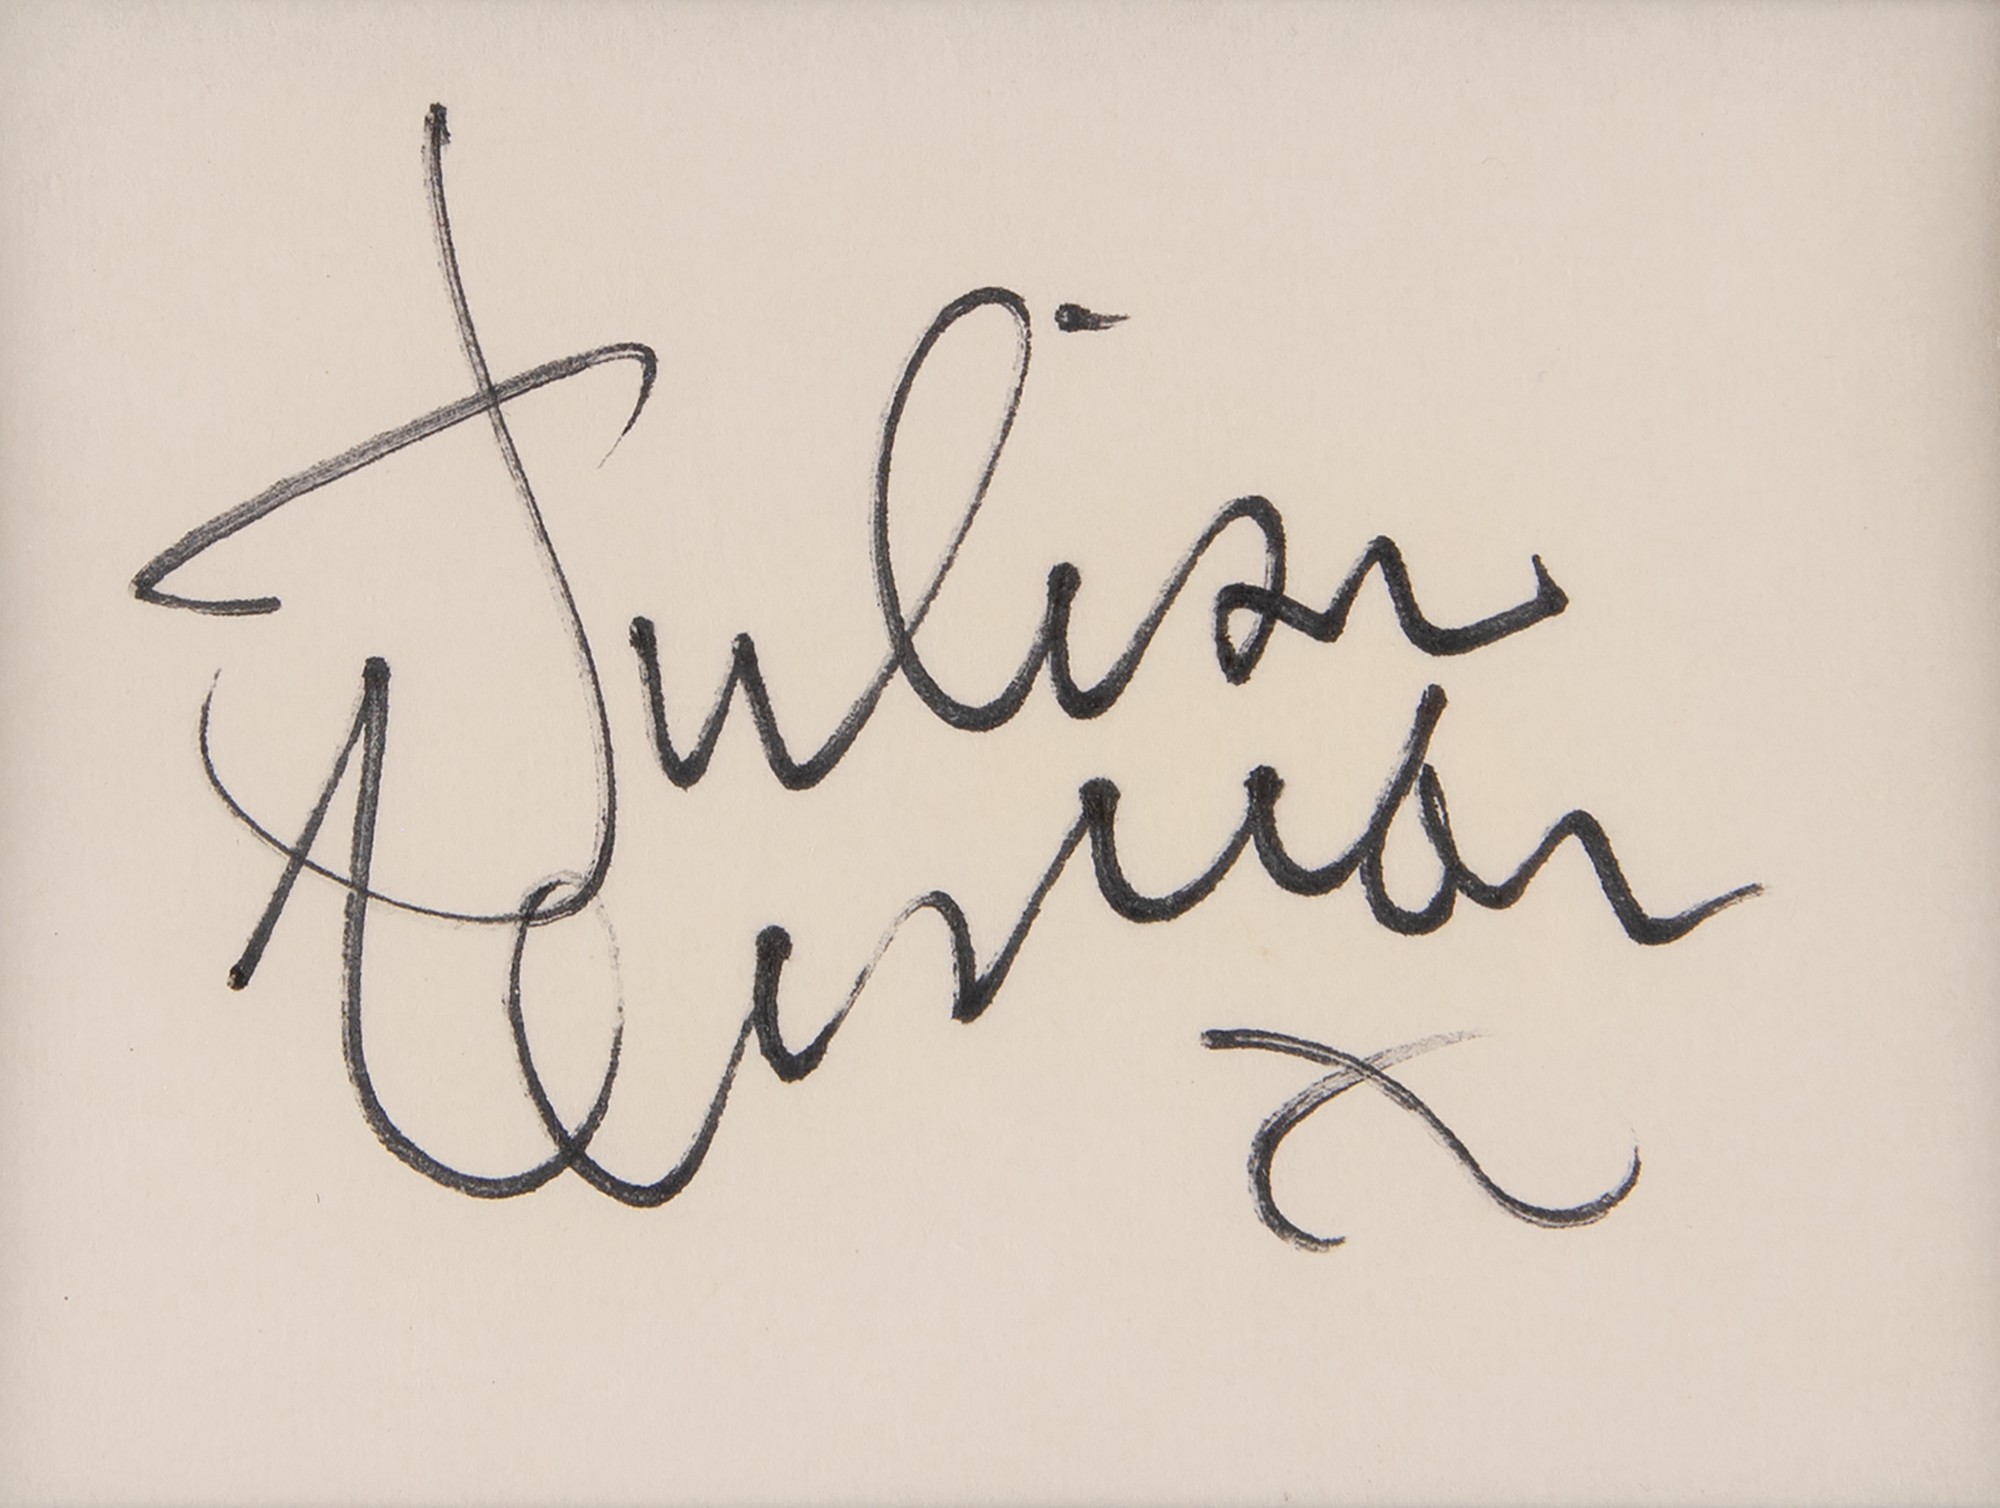 Julian
Lennon